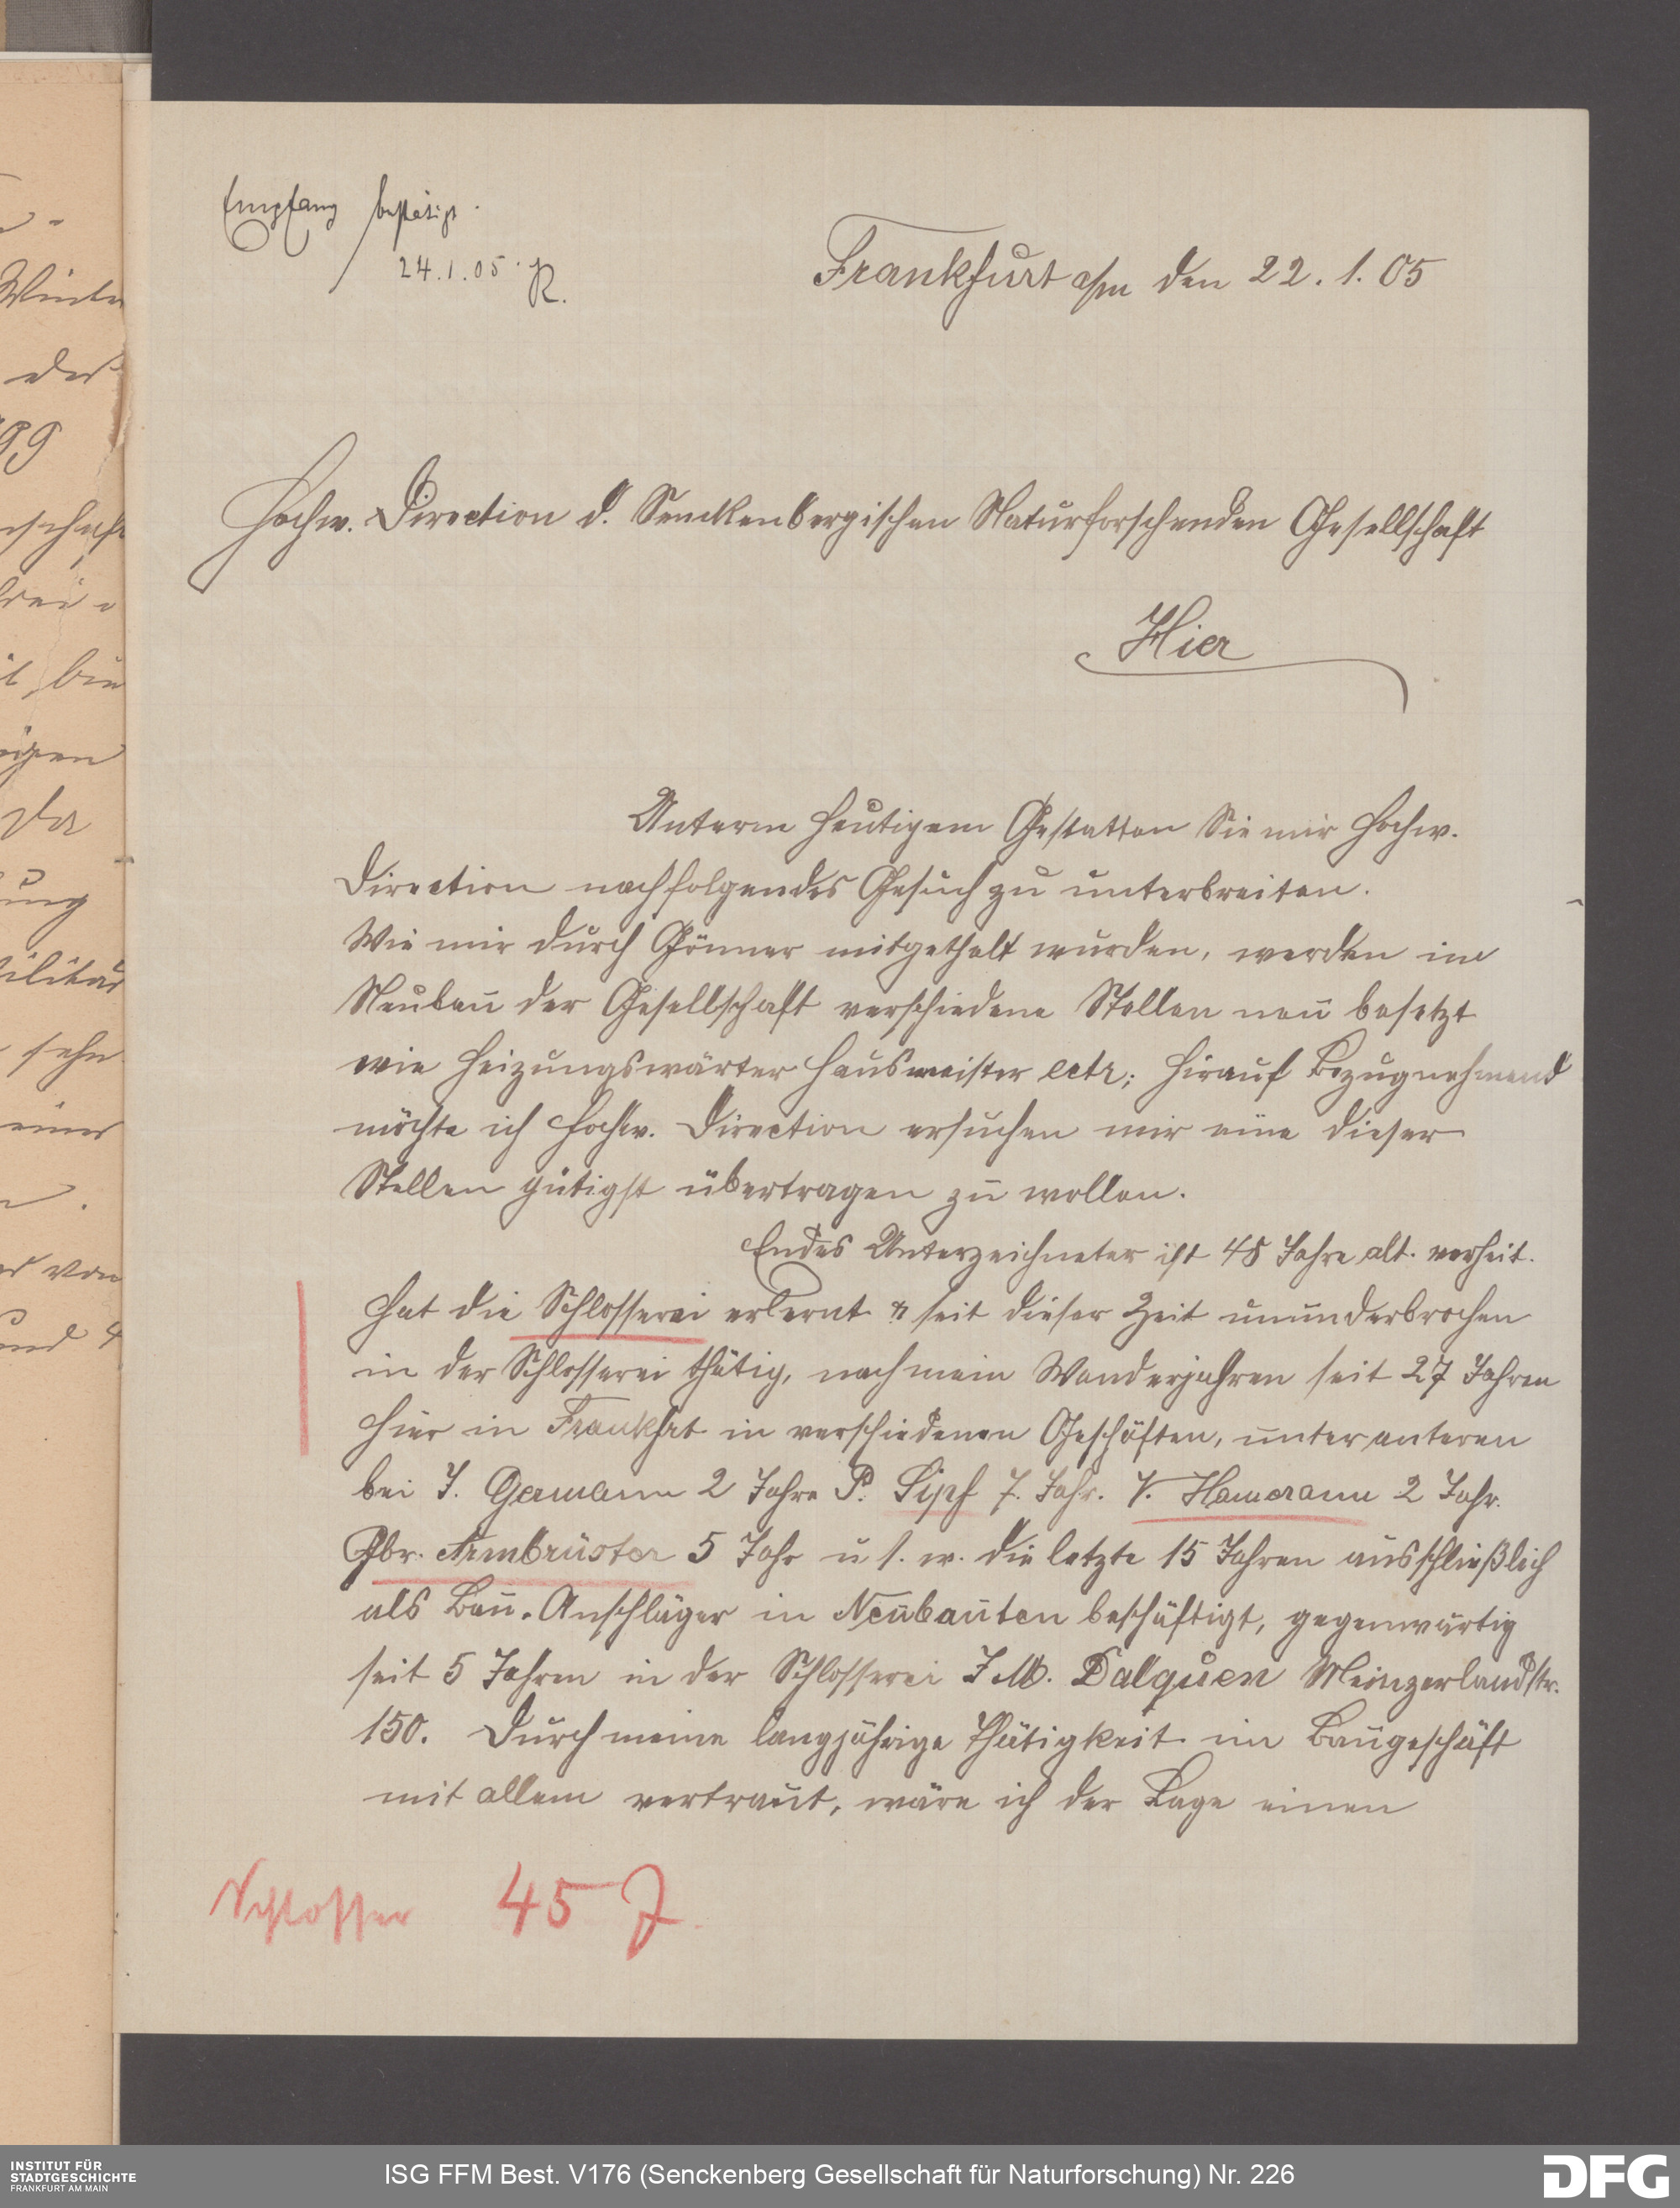 Empfang bestätigt.
24.1.05. R.
Frankfurt a/m den 22.1.05
Hochw. Direction d. Senckenbergischen Naturforschenden Gesellschaft
Hier
Unterm heutigem Gestatten Sie mir Hochw.
Direction nachfolgendes Gesuch zu unterbreiten.
Wie mir durch Gönner mitgetheilt wurden, werden im
Neubau der Gesellschaft verschiedene Stellen neu besetzt
wie Heizungswärter Hausmeister ectr; Hirauf Bezugnehmend
möchte ich Hochw. Direction ersuchen mir eine dieser
Stellen gütigst übertragen zu wollen.
Endes Unterzeichneter ist 45 Jahre alt. verheit.
Hat die Schlosserei erlernt & seit dieser Zeit ununderbrochen
in der Schlosserei thätig, nach mein Wanderjahren seit 27 Jahren
hier in Frankfrt in verschiedenen Geschäften, unter anteren
bei J. Germann 2 Jahre P. Sipf 7. Jahr. V. Hamerann 2 Jahr.
Gbr. Armbrüster 5 Jahr u s. w. die letzte 15 Jahren ausschließlich
als Bau-Anschläger in Neubauten beschäftigt, gegenwärtig
seit 5 Jahren in der Schlosserei J M. Dalquen Meinzerlandstr.
150. Durch meine langjährige Thätigkeit im Baugeschäft
mit allem vertraut, wäre ich der Lage einen
Schlosser 45 J.
Winter
der
99
schaft
bin
igen
Da
ung
ilitär
sehr
einer
von
und 4
INSTITUT FÜR
STADTGESCHICHTE
FRANKFURT AM MAIN
ISG FFM Best. V176 (Senckenberg Gesellschaft für Naturforschung) Nr. 226
DFG